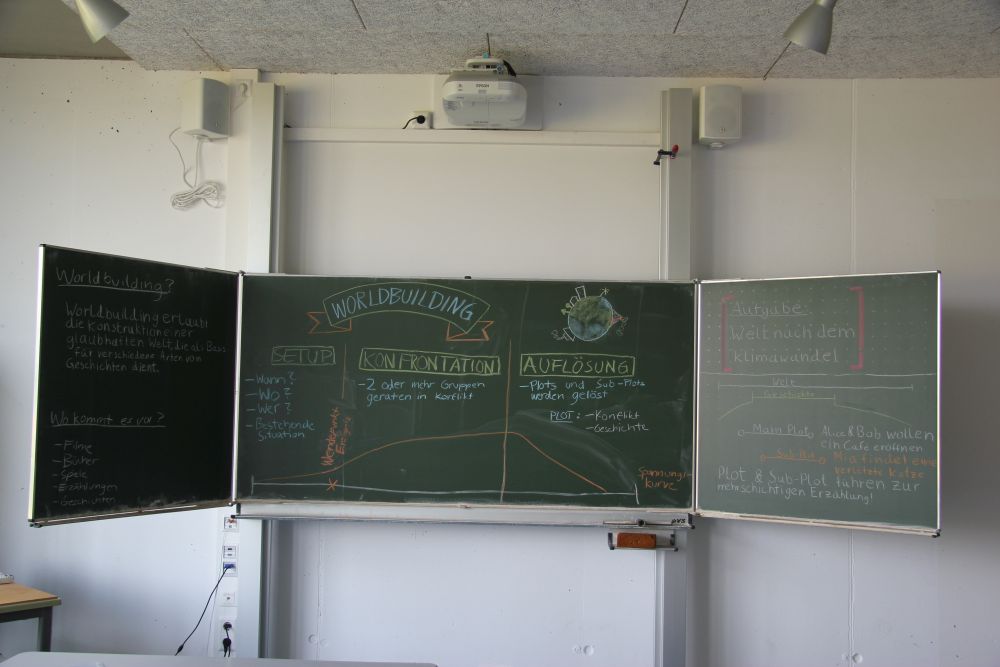 EPSON
Worldbuilding?
Worldbuilding erlaubt
die Konstruktion einer
glaubhaften Welt, die als Basis
für verschiedene Arten von
Geschichten dient.
Wo kommt es vor?
- Filme
- Bücher
- Spiele
- Erzählungen
- Geschichten
WORLDBUILDING
SETUP
- Wann?
- Wo?
- Wer?
- Bestehende
Situation
Wendepunkt
Ereignis
KONFRONTATION
- 2 oder mehr Gruppen
geraten in Konflikt
AUFLÖSUNG
- Plots und Sub-Plots
werden gelöst
PLOT: - Konflikt
- Geschichte
Spannungs-
kurve
Aufgabe:
Welt nach dem
Klimawandel
Welt
Geschichte
Main Plot
Alice & Bob wollen
ein Cafe eröffnen
Sub-Plot
Mia findet eine
verletzte Katze
Plot & Sub-Plot führen zur
mehrschichtigen Erzählung!